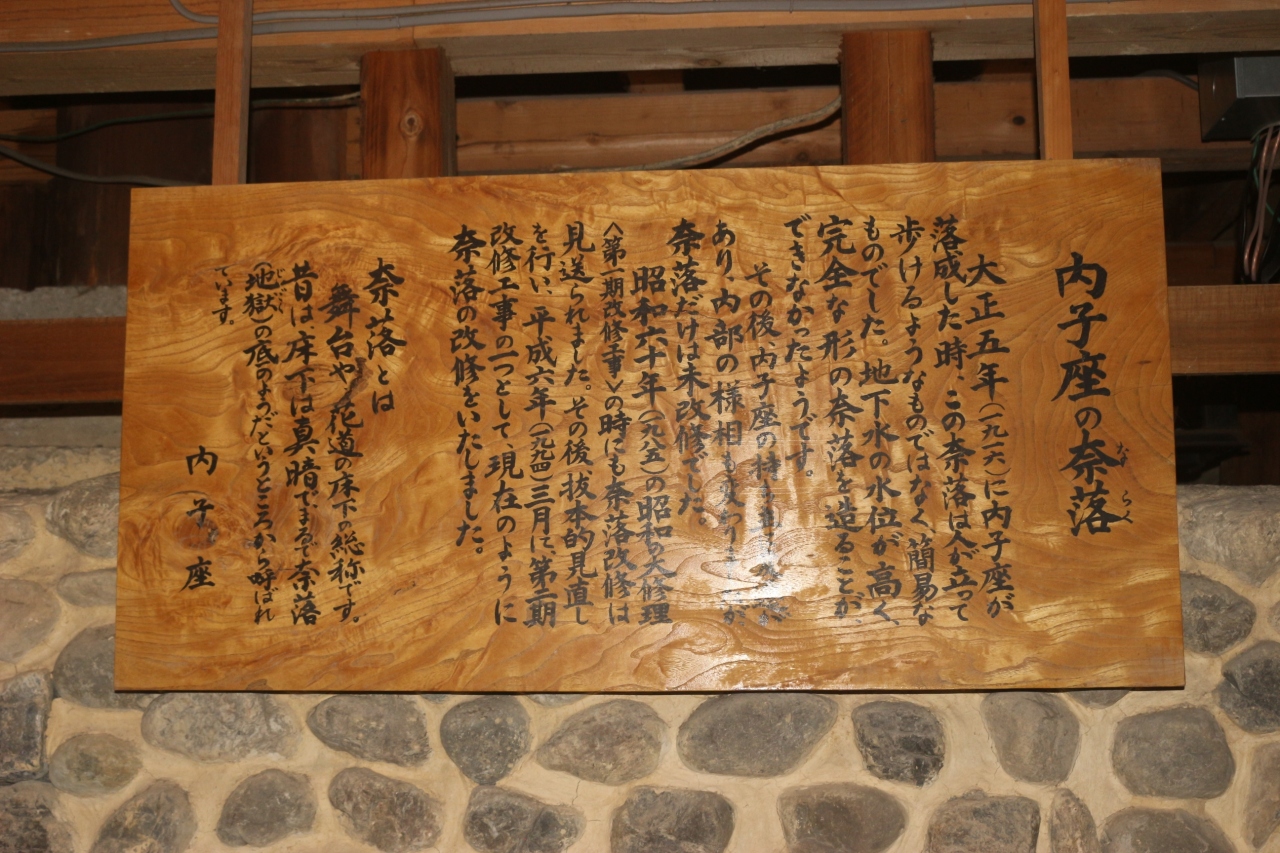 内子座の奈落
なら
らく
大正五年(一九一六)に内子座が
落成した時、この奈落は人が立って
歩けるようなものではなく、簡易な
ものでした。地下水の水位が高く、
完全な形の奈落を造ることが、
できなかったようです。
その後、内子座の
あり、内部の様相も変わりましたが
奈落だけは未改修でした。
昭和六十年(一九八五)の昭和の大修理
<第一期改修工事>の時にも奈落改修は
見送られました。その後抜本的見直し
を行い、平成六年(一九九四)三月に、第二期
改修工事の一つとして、現在のように
奈落の改修をいたしました。
奈落とは
舞台や花道の床下の総称です。
昔は、床下は真暗でまるで奈落
じごく
(地獄)の底のようだというところから呼ばれ
ています。
内子座